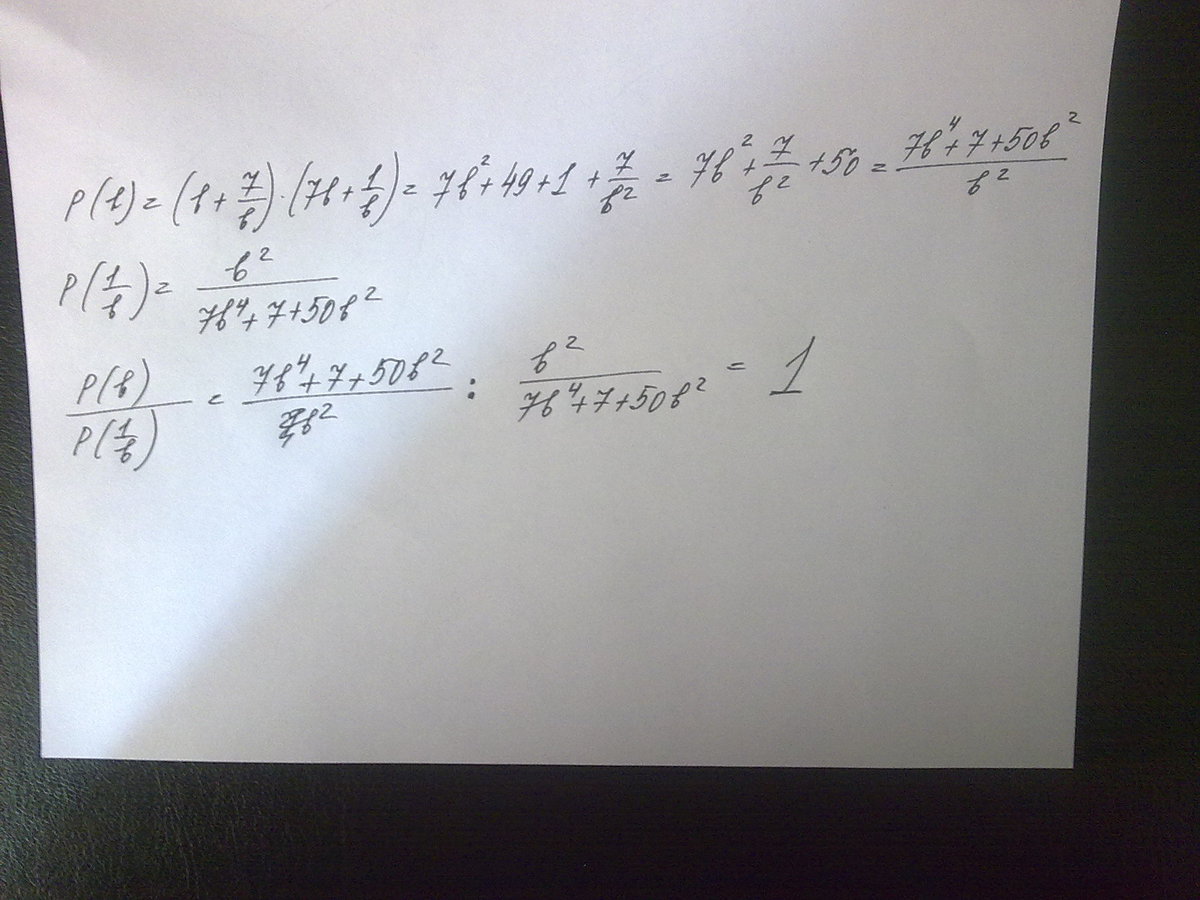 P(b) = (b + 7/b) · (7b + 1/b) = 7b² + 49 + 1 + 7/b² = 7b² + 7/b² + 50 = (7b⁴ + 7 + 50b²)/b²
P(1/b) = b²/(7b⁴ + 7 + 50b²)
P(b)/P(1/b) = (7b⁴ + 7 + 50b²)/b² : b²/(7b⁴ + 7 + 50b²) = 1